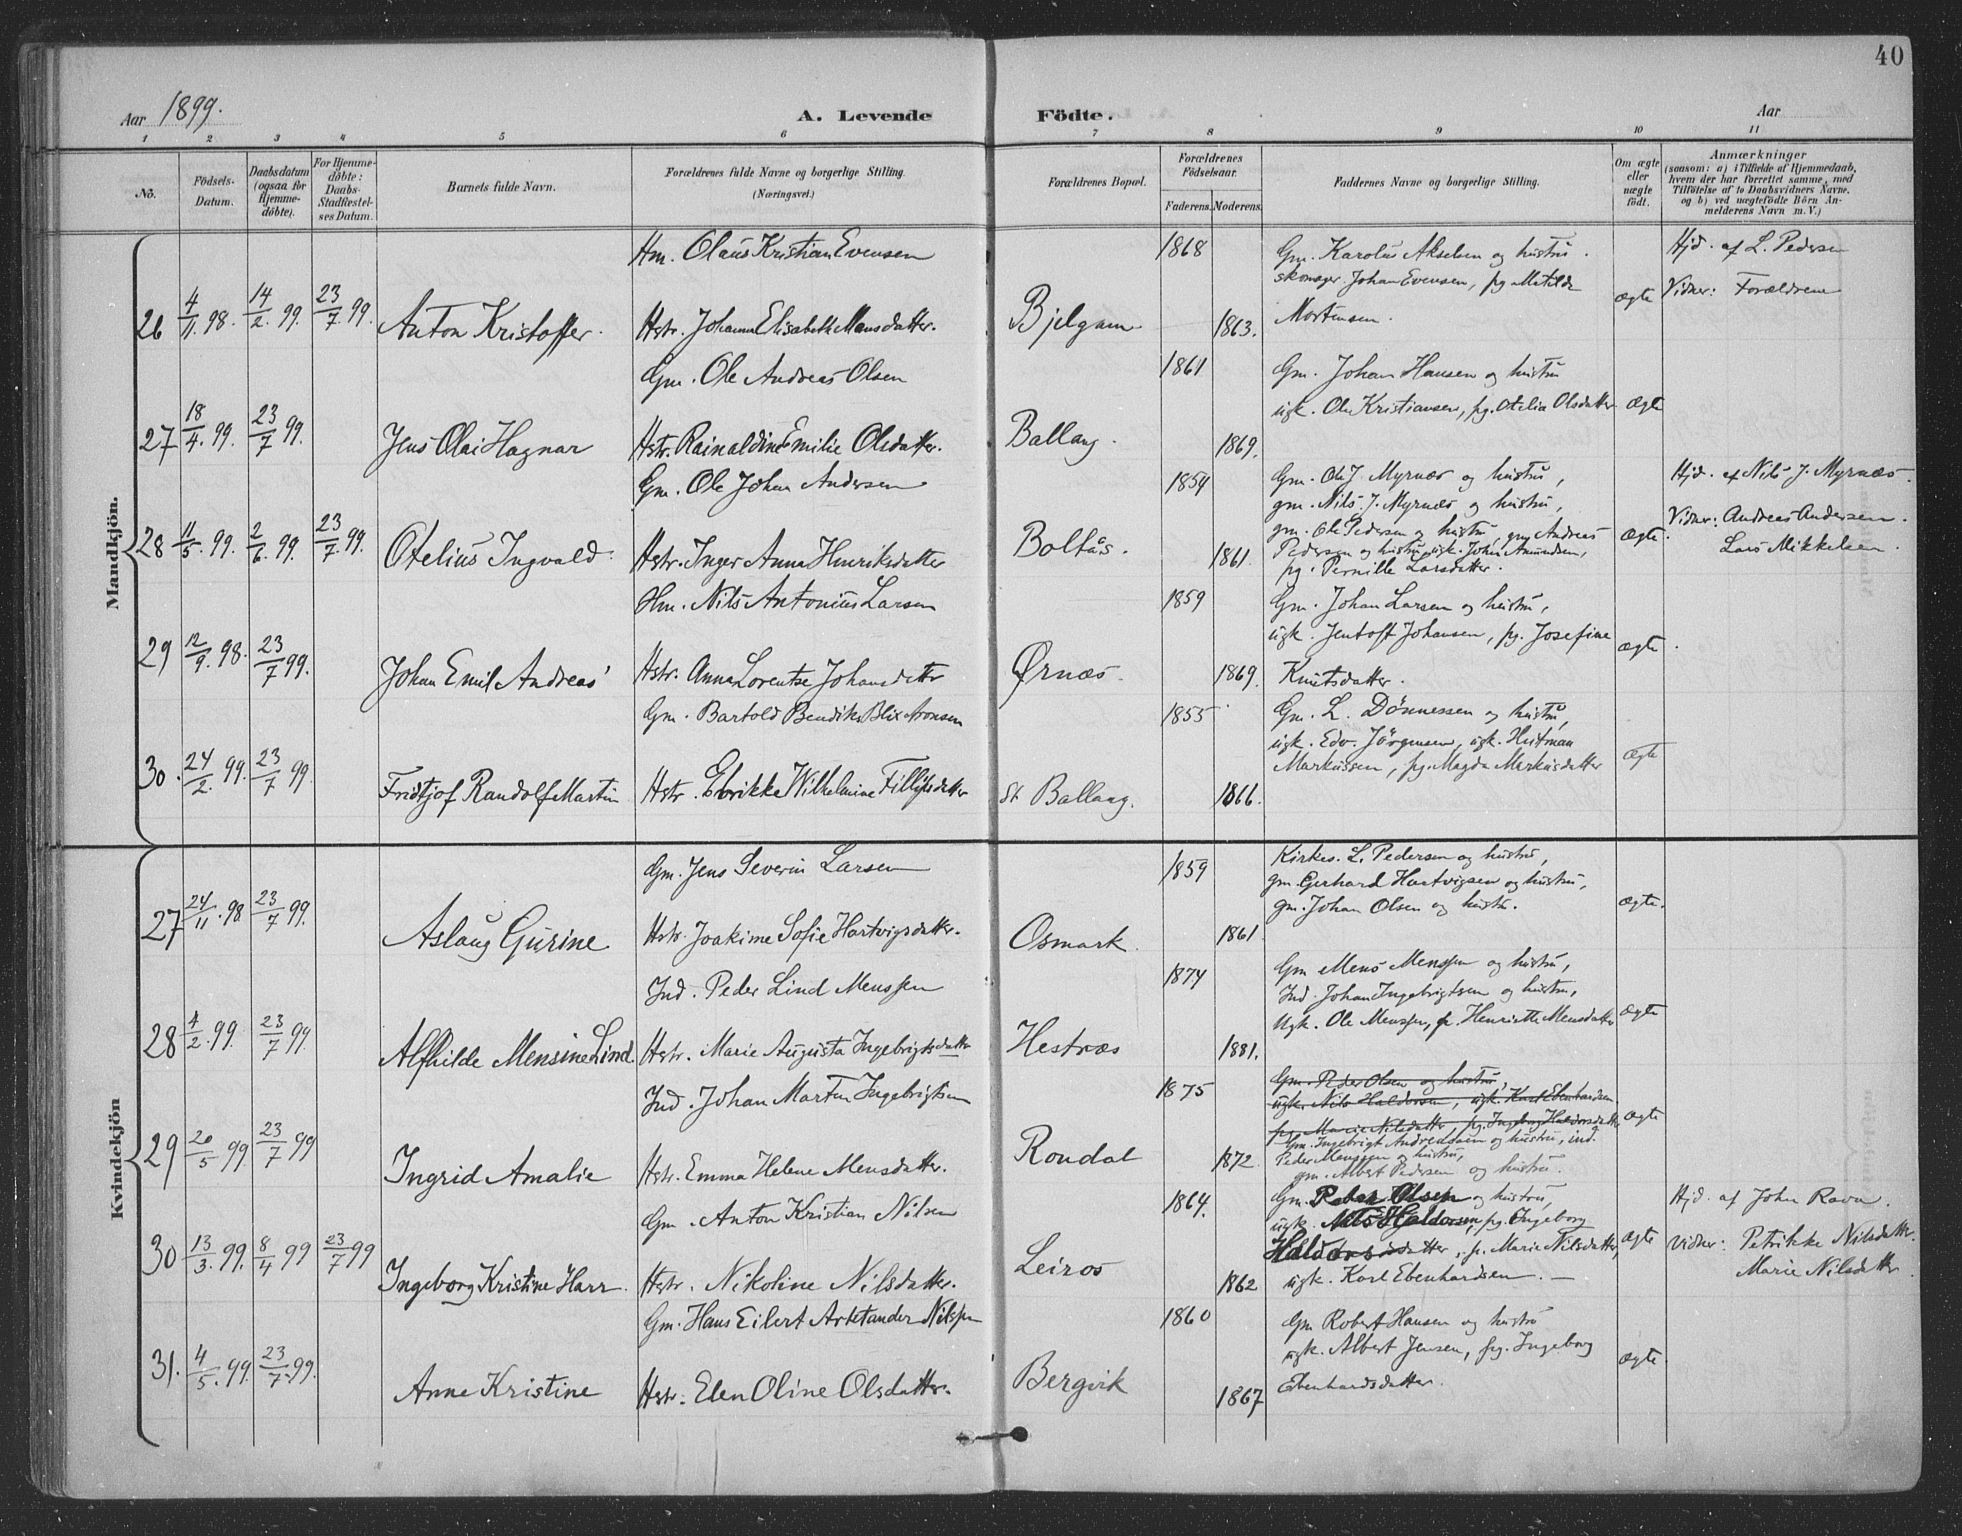 40
Aar 1899.
A. Levende Födte.
Aar
1 2 3 4 5 6 7 8 9 10 11
No.
Födsels-Datum.
Daabsdatum (ogsaa for Hjemme-döbte).
For Hjemme-döbte: Daabs-Stadfæstel-ses Datum.
Barnets fulde Navn.
Forældrenes fulde Navne og borgerlige Stilling.
(Næringsvei.)
Forældrenes Bopæl.
Forældrenes Födselsaar.
Faderens. Moderens.
Faddernes Navne og borgerlige Stilling.
Om ægte eller uægte födt.
Anmærkninger
(saasom: a) i Tilfælde af Hjemmedaab,
hvem der har forrettet samme, med
Tilföielse af to Daabsvidners Navne,
og b) ved uægtefödte Börn An-
melderens Navn m. V.)
Mandkjön.
26 4/11. 98. 14/2. 99. 23/7 99. Anton Kristoffer.
Hm. Olaus Kristian Evensen
Hstr. Johanna Elisabeth Mensdatter.
Bjelgam
1868
1863.
Gm. Karolus Akselsen og hustru.
skomager Johan Evensen, pg. Matilde
Mortensen.
ægte
Hjd. af L. Pedersen
Vidner: Forældrene
27 18/4. 99. 23/7 99. Jens Olai Hagnar
Gm. Ole Andreas Olsen
Hstr. Rainaldine Emilie Olsdatter.
Ballang.
1861
1869.
Gm. Johan Hansen og hustru
ugk. Ole Kristiansen, pg. Otelia Olsdatter
ægte
28 11/5. 99. 2/6. 99. 23/7. 99. Otelius Ingvald.
Gm. Ole Johan Andersen
Hstr. Inger Anna Henriksdatter
Boltås.
1859
1861.
Gm. Ole J. Myrnæs og hustru,
gm. Nils J. Myrnæs og hustru,
gm. Ole Pedersen og hustru, gm Andreas
Pedersen og hustru, ugk. John Amundsen,
pg. Pernille Larsdatter.
ægte.
Hjd. af Nils J. Myrnæs.
Vidner: Andreas Andersen.
Lars Mikkelsen.
29 12/9. 98. 23/7 99. Johan Emil Andreas
Hm. Nils Antonius Larsen
Hstr. Anna Lorentse Johansdatter
Ørnæs.
1859
1869.
Gm. Johan Larsen og hustru,
ugk. Jentoft Johansen, pg. Josefine
Knutsdatter.
ægte.
30. 24/2. 99. 23/7 99. Fridtjof Randolf Martin
Gm. Bartold Bendiks Blix Aronsen
Hstr. Elrikke Wilhelmine Fillipsdatter
St. Ballang.
1855
1866.
Gm. L. Dönnessen og hustru,
ugk. Edv. Jörgensen, ugk. Hartman
Markussen, pg. Magda Markusdatter
ægte
Kvindekjön
27 24/11. 98 23/7 99. Aslaug Gurine
Gm. Jens Severin Larsen
Hstr. Joakime Sofie Hartvigsdatter.
Osmark.
1859
1861.
Kirkes. L. Pedersen og hustru,
gm. Gerhard Hartvigsen og hustru,
gm. Johan Olsen og hustru.
ægte.
28 4/2. 99. 23/7 99. Alfhilde Mensine Lind.
Ind. Peder Lind Menssen
Hstr. Marie Augusta Ingebrigtsdatter
Hestnæs
1874
1881.
Gm Mens Menssen og hustru,
Ind. Johan Ingebrigtsen og hustru,
Ugk. Ole Menssen, pg Henriette Mensdatter
ægte
29 20/5 99. 23/7 99 Ingrid Amalie
Ind. Johan Martin Ingebrigtsen
Hstr. Emma Helene Mensdatter.
Rondal
1875
1872.
Gm. Peder Olsen og hustru,
ugk. Nils Haldorsen, ugk. Karl Ebenhardsen
pg. Marie Nilsdatter, pg. Ingeborg Haldorsdatter
Gm. Ingebrigt Andreassen og hustru, ind.
Peder Menssen og hustru,
gm. Albert Pedersen og hustru.
ægte
30 13/3. 99. 8/4 99 23/7 99 Ingeborg Kristine Harr.
Gm. Anton Kristian Nilsen
Hstr. Nikoline Nilsdatter.
Leiros
1864.
1862
Gm. Peder Olsen og hustru,
ugk. Nils Haldorsen, pg. Ingeborg
Haldorsdatter, p. Marie Nilsdatter,
ugk. Karl Ebenhardsen.
ægte
Hjd. af John Ravn.
Vidner: Petrikke Nilsdatter.
Marie Nilsdatter
31. 4/5. 99. 23/7. 99. Anne Kristine
Gm. Hans Eilert Artetander Nilssen
Hstr. Elen Oline Olsdatter.
Bergvik
1860
1867
Gm Robert Hansen og hustru
ugk. Albert Jensen, pg. Ingeborg
Ebenhardsdatter.
ægte.